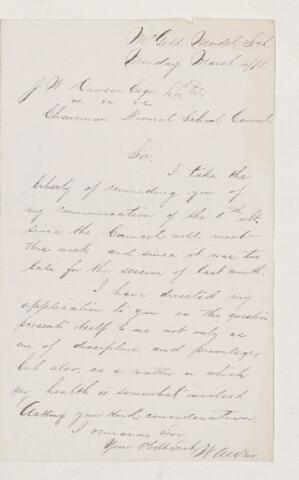 McGill Model Sch.
Monday March 4/78.
J. W. Dawson Esqr. LL.D.
Chairman Normal School Council
Sir,
I take the
liberty of reminding you of
my communication of the 5th ult.
since the Council will meet
this week and since it was too
late for the session of last month.
I have directed my
application to you as the question
presents itself to me not only as
one of discipline and privileges,
but also, as a matter in which
my health is somewhat involved
Asking your kind consideration,
I remain, Sir
Your Obdt Servt